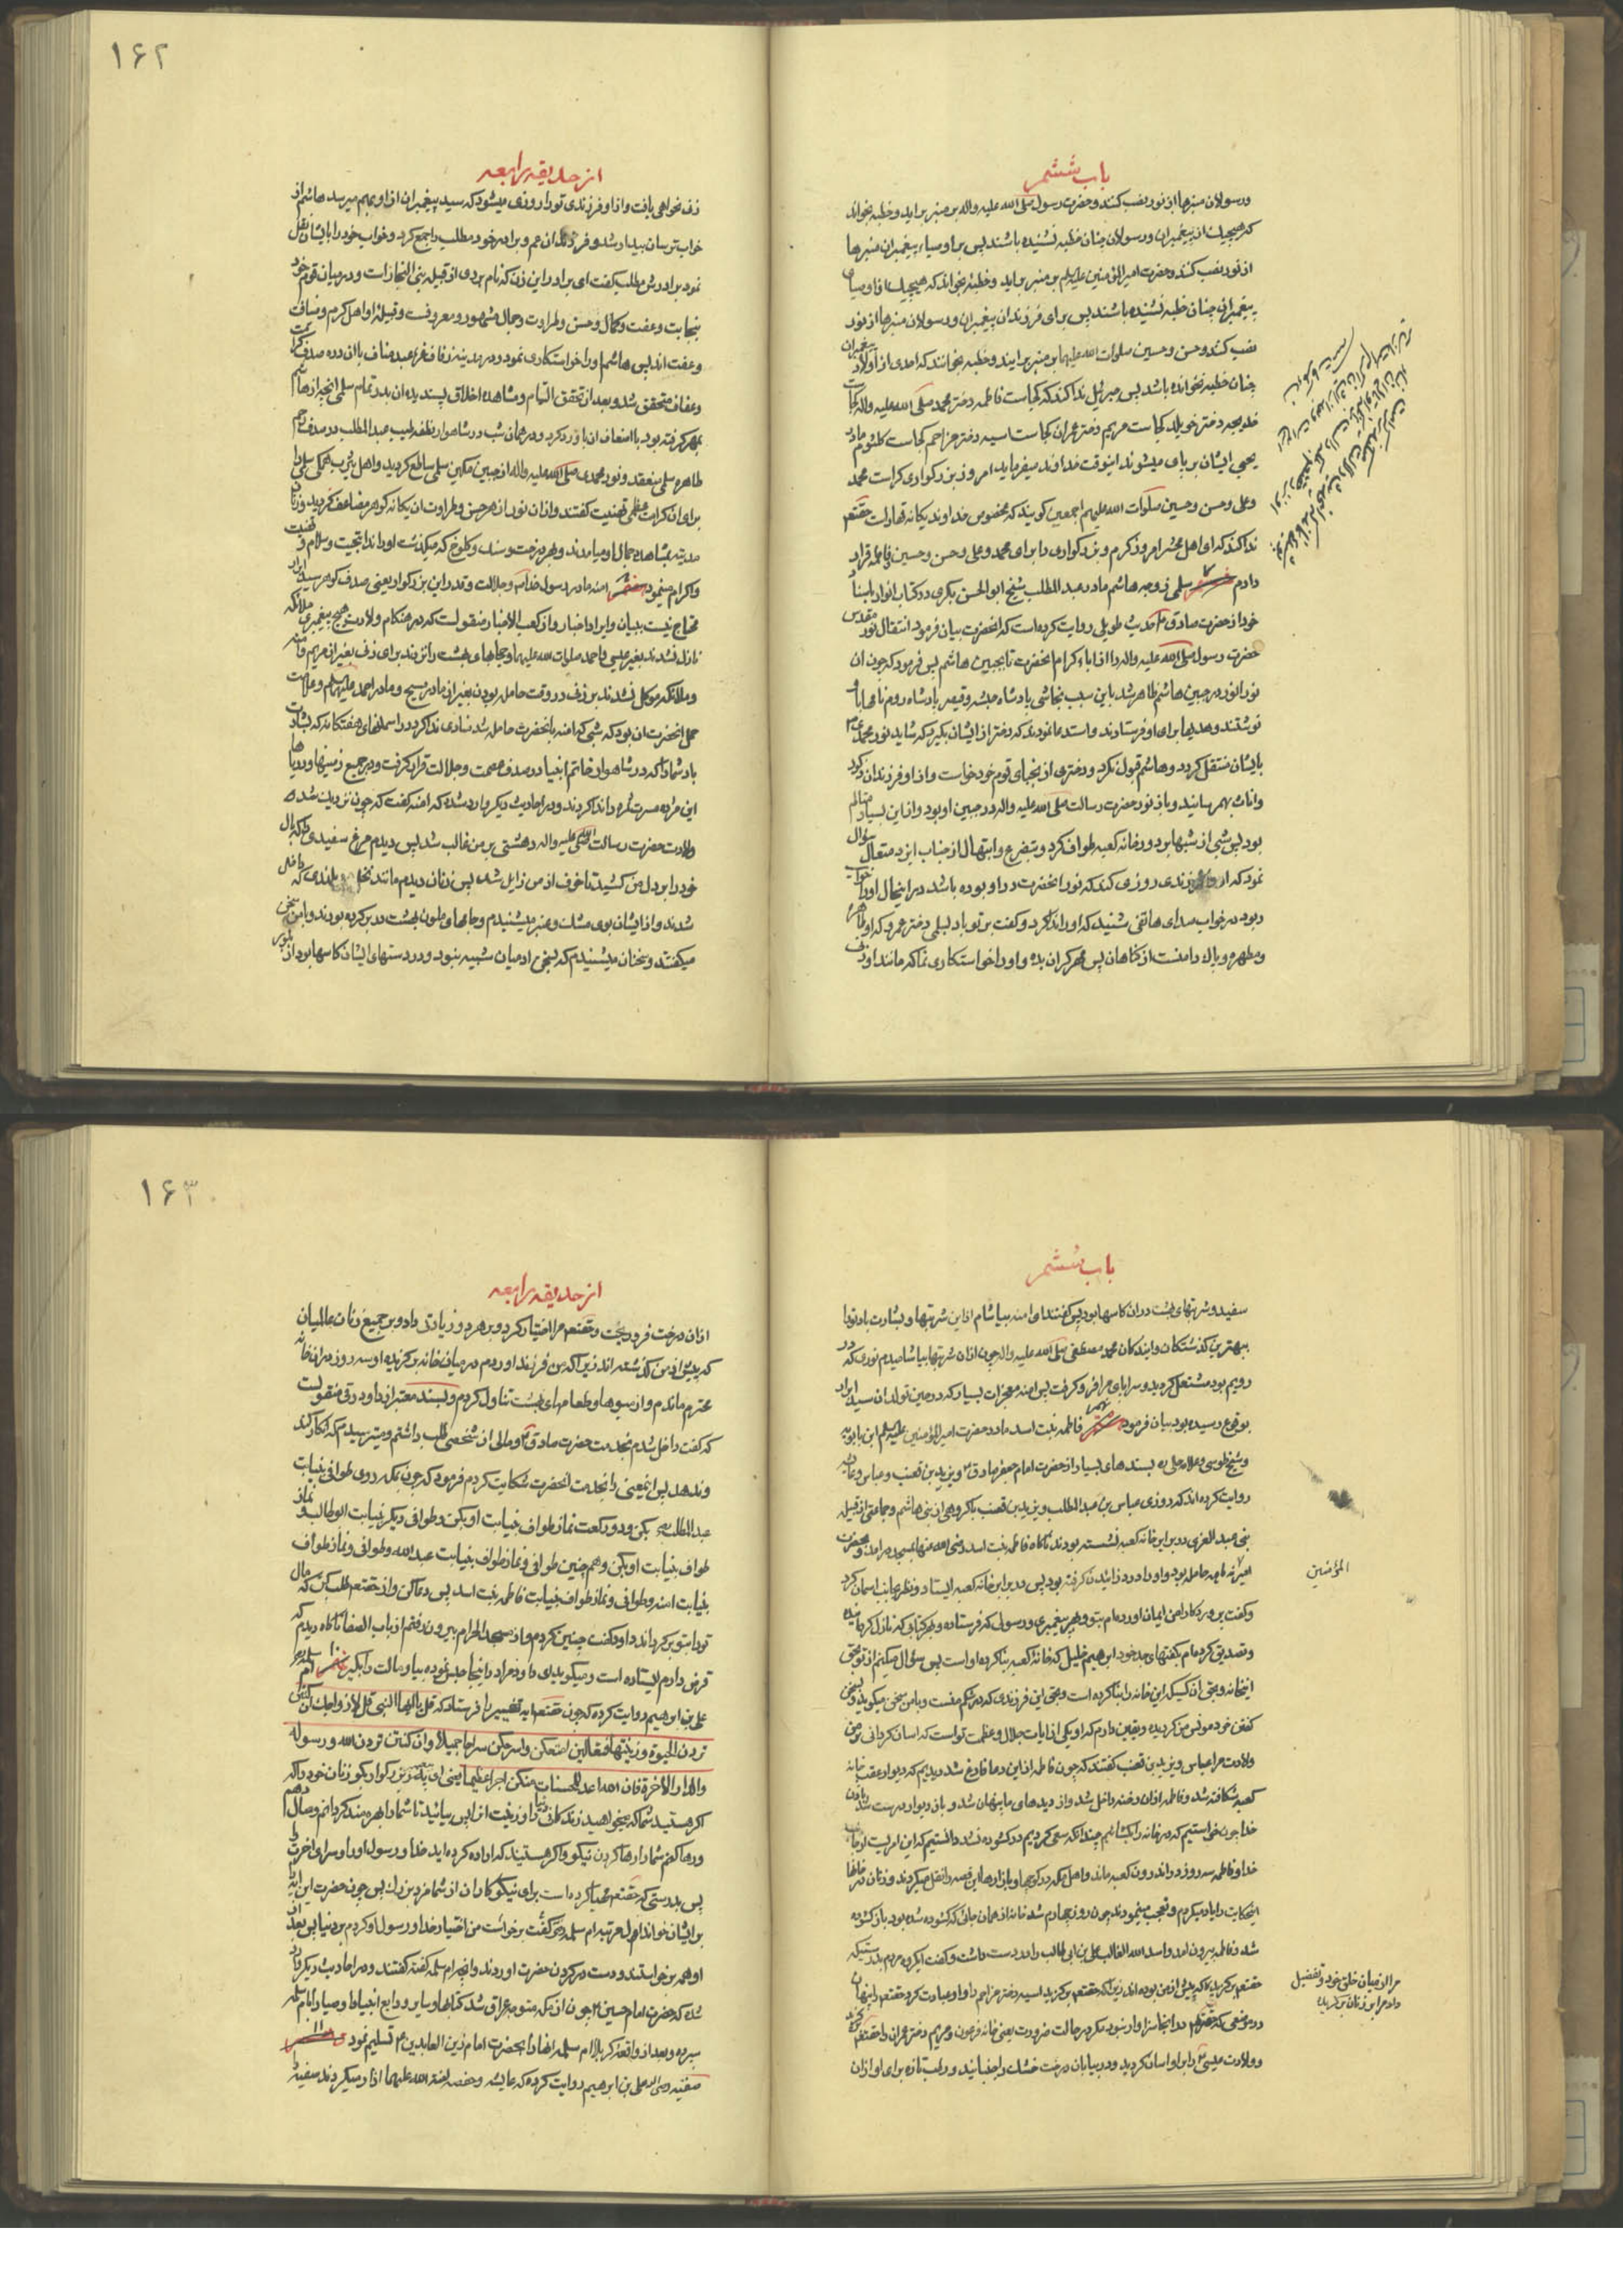 باب ششم
ورسولان منبرها از نور نصب کنند و حضرت رسول صلی الله علیه واله بر منبر براید وخطبه بخواند
که هیچیک از پیغمبران ورسولان چنان خطبه نشنیده باشند پس برای اوصیاء پیغمبران منبرها
از نور نصب کنند و حضرت امیر المؤمنین علیه السلم بر منبر براید وخطبه بخواند که هیچیک از اوصیای
پیغمبران چنان خطبه نشنیده باشند پس برای فرزندان پیغمبران ورسولان منبرها از نور
نصب کنند وحسن وحسین صلوات الله علیهما بر منبر برایند وخطبه بخوانند که احدی از اولاد پیغمبران
چنان خطبه نخوانده باشد پس جبرئیل ندا کند که کجاست فاطمه دختر محمد صلی الله علیه واله کجاست
خدیجه دختر خویلد کجاست مریم دختر عمران کجاست اسیه دختر مزاحم کجاست کلثوم مادر
یحیی ایشان بر پای میشوند اینوقت خداوند میفرماید امروز بزرکواری کراست محمد
وعلی وحسن وحسین صلوات الله علیهم اجمعین کویند که مخصوص خداوند یکانه قهار است حقتعم
ندا کند که ای اهل محشر امروز کرم و بزرکواری را برای محمد وعلی وحسن وحسین وفاطمه قرار
دادم سلمی زوجه هاشم مادر عبد المطلب شیخ ابو الحسن بکری در کتاب انوار باسناد
خود از حضرت صادق حدیث طویلی روایت کرده است که انحضرت بیان فرمود انتقال نور مقدس
حضرت رسول صلی الله علیه واله را از اباء کرام انحضرت تا بجبین هاشم پس فرمود که چون ان
نور انور در جبین هاشم ظاهر شد باین سبب نجاشی پادشاه حبشه وقیصر پادشاه روم نامها باو
نوشتند وهدیها برای او فرستادند واستدعا نمودند که دختر از ایشان بکیرد که شاید نور محمدی
بایشان منتقل کردد وهاشم قبول نکرد ودختری از نجبای قوم خود خواست واز او فرزندان ذکور
واناث بهم رسانید وباز نور حضرت رسالت صلی الله علیه واله در جبین او بود واز این بسیار متالم
بود پس شبی از شبها بر دور خانه کعبه طواف کرد وبتضرع وابتهال از جناب ایزد متعال سؤال
نمود که او را فرزندی روزی کند که نور انحضرت در او بوده باشد در اینحال او را خواب
ربود در خواب صدای هاتفی شنید که او را ندا کرد وکفت بر تو باد بسلمی دختر عمرو که او طاهره
ومطهره وپاک دامنست از کناهان پس مهر کران بده واو را خواستکاری نما که مانند او زنی
۱۶۲
از حدیقه رابعه
زن نخواهی یافت واز او فرزندی تو را روزی میشود که سید پیغمبران از او بهم میرسد هاشم از
خواب ترسان بیدار شد و فرزندان عم و برادر خود مطلب را جمع کرد وخواب خود را بایشان نقل
نمود برادرش مطلب کفت ای برادر این زن که نام بردی از قبیله بنی النجار است ودر میان قوم خود
بنجابت وعفت وکمال وحسن وطراوت وجمال مشهور ومعروفست وقبیله او اهل کرم وضیافت
وعفت اند پس هاشم او را خواستکاری نمود ودر مدینه زفاف غره عبد مناف با ان دره صدف کرامت
وعفاف متحقق شد وبعد از تحقق التیام ومشاهده اخلاق پسندیده ان بدر تمام سلمی انچه از هاشم
بمهر کرفته بود با اضعاف ان باو رد کرد ودر همان شب در شاهوار نطفه طیب عبد المطلب در صدف رحم
طاهره سلمی منعقد و نور محمدی صلی الله علیه واله از جبین مکین سلمی ساطع کردید واهل یثرب همکی سلمی را
برای ان کرامت عظمی تهنیت کفتند واز ان نور ازهر حسن وطراوت ان یکانه کوهر مضاعف کردید وزنان
مدینه بمشاهده جمال او میامدند وبهر درخت وسنک وکلوخ که میکذشت او را ندا بتحیت وسلام وتهنیت
واکرام مینمود امنه مادر رسول خداست وجلالت وقدر این بزرکوار یعنی صدف کوهر سید ابرار
محتاج نیست ببیان وایراد اخبار واز کعب الاحبار منقولست که در هنکام ولادت هیچ پیغمبری ملائکه
نازل نشدند بغیر عیسی واحمد صلوات الله علیهما وحجابهای بهشت را نزدند برای زنی بغیر از مریم وامنه
وملائکه موکل نشدند بر زنی در وقت حامله بودن بغیر از مادر مسیح ومادر احمد علیهم السلم وعلامت
حمل انحضرت ان بود که شبی که امنه بانحضرت حامله شد منادی ندا کرد در اسمانهای هفتکانه که بشارت
باد شما را که در شاهوار خاتم انبیا در صدف عصمت وجلالت قرار کرفت ودر جمیع زمینها ودریاها
این مژده مسرت ثمره را ندا کردند ودر احادیث دیکر وارد شده که امنه کفت که چون نزدیک شد
ولادت حضرت رسالت صلی الله علیه واله دهشتی بر من غالب شد پس دیدم مرغ سفیدی را که بال
خود را بر دل من کشید تا خوف از من زایل شد پس زنان دیدم مانند نخل بلندی که داخل
شدند واز ایشان بوی مشک وعنبر میشنیدم وجامهای ملون بهشت در بر کرده بودند وبا من سخن
میکفتند وسخنان میشنیدم که بسخن ادمیان شبیه نبود ودر دستهای ایشان کاسها بود از بلور
باب ششم
سفید وشربتهای بهشت در ان کاسها بود پس کفتند ای امنه بیاشام از این شربتها وبشارت باد ترا
ببهترین کذشتکان وایندکان محمد مصطفی صلی الله علیه واله چون ازان شربتها بیاشامیدم نوری که در
رویم بود مشتعل کردید وسراپای مرا فرو کرفت پس امنه معجزات بسیار که در حین تولد ان سید ابرار
بوقوع رسیده بود بیان فرمود فاطمه بنت اسد مادر حضرت امیر المؤمنین علیه السلم ابن بابویه
وشیخ طوسی وعلامه حلی ره بسندهای بسیار از حضرت امام جعفر صادق ویزید بن قعنب وعباس وعایشه
روایت کرده اند که روزی عباس بن عبد المطلب ویزید بن قعنب با کروهی از بنی هاشم وجماعتی از قبیله
بنی عبد العزی در برابر خانه کعبه نشسته بودند ناکاه فاطمه بنت اسد رضی الله عنها بمسجد در امد وبحضرت
امیر نه ماهه حامله بود واو را درد زائیدن کرفته بود پس در برابر خانه کعبه ایستاد ونظر بجانب اسمان کرد
المؤمنین
وکفت پروردکارا من ایمان اورده ام بتو وبهر پیغمبری ورسولی که فرستاده وبهر کتابی که نازل کردانیده
وتصدیق کرده ام بکفتهای جد خود ابراهیم خلیل که خانه کعبه بنا کرده او است پس سؤال میکنم از تو بحق
اینخانه وبحق ان کسیکه این خانه را بنا کرده است وبحق این فرزندی که در شکم منست وبا من سخن میکوید وبسخن
کفتن خود مونس من کردیده ویقین دارم که او یکی از ایات جلال وعظمت تواست که اسان کردانی بر من
ولادت مرا عباس ویزید بن قعنب کفتند که چون فاطمه از این دعا فارغ شد دیدیم که دیوار عقب خانه
کعبه شکافته شد وفاطمه از ان رخنه داخل شد واز دیدهای ما پنهان شد وباز دیوار درست شد باذن
خدا چون خواستیم که در خانه را بکشائیم چندانکه سعی کردیم در کشوده نشد دانستیم که این امریست از جانب
خدا وفاطمه سه روز در اندرون کعبه ماند واهل مکه در کوچها وبازارها این قصه را نقل میکردند وزنان در خانها
اینحکایت را یاد میکردم وتعجب مینمودند چون روز چهارم شد خانه از همان جائی که کشوده شده بود باز کشوده
شد وفاطمه بیرون امد واسد الله الغالب علی بن ابی طالب را در دست داشت وکفت ایکروه مردم بدرستیکه
حقتعم برکزید مرا از میان خلق خود وتفضیل
داد مرا بر زنان برکزیده
که پیش از من بوده اند زیرا که حقتعم برکزید اسیه دختر مزاحم را واو عبادت کرد حقتعم را پنهان
در موضعی که حقتعم در انجا سزاوار نبود مکر در حالت ضرورت یعنی خانه فرعون ومریم دختر عمران را حقتعم برکزید
وولادت عیسی را بر او اسان کردید ودر بیابان درخت خشک را جنبانید ورطب تازه برای او از ان
۱۶۳
از حدیقه رابعه
ازان درخت فرو ریخت وحقتعم مرا اختیار کرد وبر هر دو زیادتی داد وبر جمیع زنان عالمیان
که پیش از من کذشته اند زیرا که من فرزند اوردم در میان خانه برکزیده او وسه روز در ان خانه
محترم ماندم واز میوها وطعامهای بهشت تناول کردم وبسند معتبر از داود رقی منقولست
که کفت داخل شدم بخدمت حضرت صادق ومالی از شخصی طلب داشتم ومیترسیدم که انکار کند
وندهد پس اینمعنی را بخدمت انحضرت شکایت کردم فرمود که چون بمکه روی طوافی بنیابت
عبد المطلب بکن ودو رکعت نماز طواف بنیابت او بکن وطوافی دیکر بنیابت ابو طالب ونماز
طواف بنیابت او بکن وهم چنین طوافی ونماز طواف بنیابت عبد الله وطوافی ونماز طواف
بنیابت امنه وطوافی ونماز طواف بنیابت فاطمه بنت اسد پس دعا کن واز حقتعم طلب کن که مال
تو را بتو برکرداند داود کفت چنین کردم واز مسجد الحرام بیرون رفتم از باب الصفا ناکاه دیدم که
قرض دارم ایستاده است ومیکوید ای داود مرا در اینجا حبس نموده بیا ومالت را بکیر ام سلمه
علی بن ابرهیم روایت کرده که چون حقتعم ایه تخییر را فرستاد که قل یا ایها النبی قل لازواجک ان کنتن
تردن الحیوة وزینتها فتعالین امتعکن واسرحکن سراحا جمیلا وان کنتن تردن الله ورسوله
والدار الاخرة فان الله اعد للمحسنات منکن اجرا عظیما یعنی ای پیغمبر بزرکوار بکو زنان خود را که
اکر هستید شما که میخواهید زندکانی دنیا را وزینت انرا پس بیائید تا شما را بهره مند کردانم ومال دهم
ورها کنم شما را رها کردن نیکو واکر هستید که اراده کرده اید خدا ورسول او را وسرای اخرت را
پس بدرستی که حقتعم مهیا کرده است برای نیکوکاران از شما مزد بزرک پس چون حضرت این ایه
بر ایشان خواند اول مرتبه ام سلمه رض کفت برخواست من اختیار خدا ورسول او کردم بر دنیا پس بعد از
او همه برخواستند ودست در کردن حضرت اوردند وانچه ام سلمه کفته کفتند ودر احادیث دیکر وارد
شده که حضرت امام حسین چون از مکه متوجه عراق شد کتابها وسایر ودایع انبیا واوصیا را بام سلمه
سپرده وبعد از واقعه کربلا ام سلمه انها را بحضرت امام زین العابدین تسلیم نمود
صفیه رض علی بن ابرهیم روایت کرده که عایشه وحفصه لعنة الله علیهما ازار میکردند صفیه را